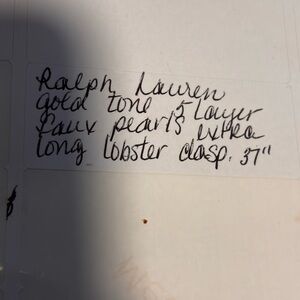 Ralph Lauren
gold tone 5 layer
faux pearls extra
long lobster clasp. 37"